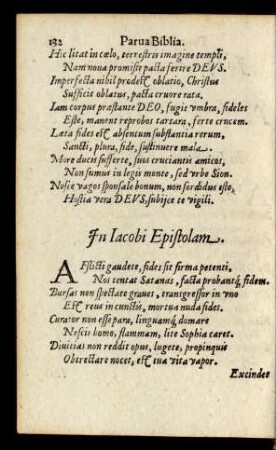 132 Parua Biblia.
Hic litat in cœlo, terrestris imagine templi,
Nam noua promisit pacta ferire DEVS.
Imperfecta nihil prodest oblatio, Christus
Sufficit oblatus, pacta cruore rata.
Iam corpus præstante DEO, fugit vmbra, fideles
Este, manent reprobos tartara, ferte crucem.
Lata fides est absentum substantia rerum,
Sancti, plura, fide, sustinuere mala.
More ducis sufferte, suos cruciantis amicos,
Non sumus in legis monte, sed vrbe Sion.
Nosse vagos sponsale bonum, non sordidus esto,
Hostia vera DEVS, subijce te vigili.
In Iacobi Epistolam.
AFflicti gaudete, fides sit firma petenti,
Nos tentat Satanas, facta probantq́; fidem.
Bursas non spectate graues, transgressor in vno
Est reus in cunctis, mortua nuda fides.
Curator non esse para, linguamq́; domare
Nescit homo, flammam, lite Sophia caret.
Diuitias non reddit opus, lugete, propinquis
Obtrectare nocet, est tua vita vapor.
Excindet